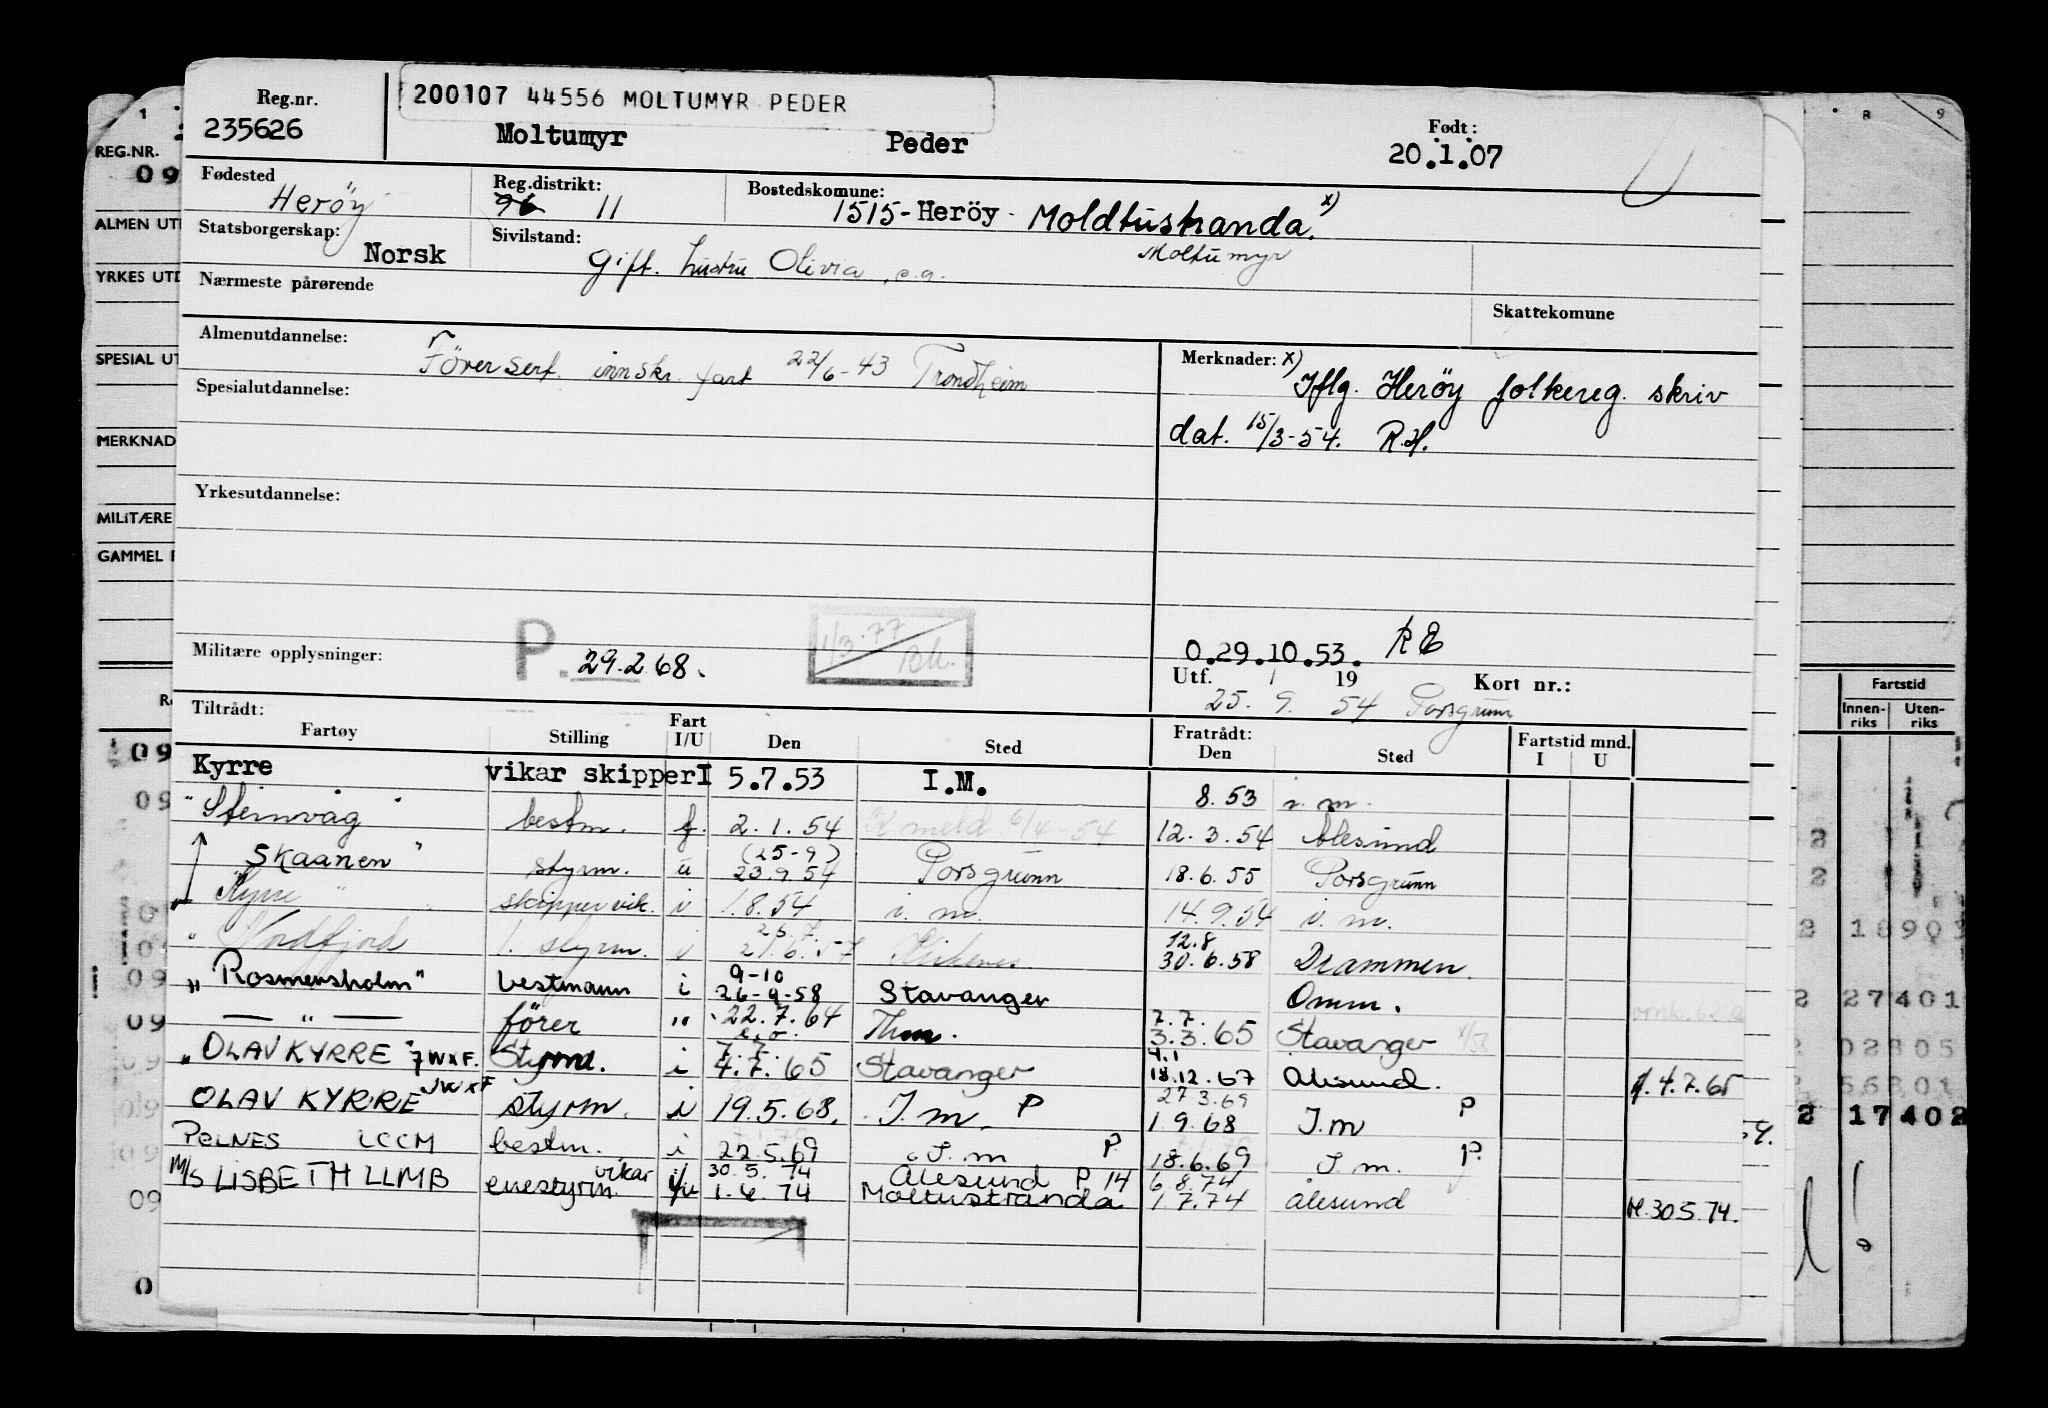 Reg.nr.
235626
200107 44556 MOLTUMYR PEDER
Moltumyr Peder
Født:
20.1.07
Fødested
Herøy
Reg.distrikt:
96 11
Bostedskomune:
1515-Herøy - Moldtustranda. x)
Statsborgerskap:
Norsk
Sivilstand:
Gift. hustru Olivia, s.a.
Moltumyr
Nærmeste pårørende
Skattekomune
Almenutdannelse:
Förersert. innskr. fart 22/6-43 Trondheim
Spesialutdannelse:
Merknader: x)
Iflg. Herøy folkereg. skriv
dat. 15/3-54. R.H.
Yrkesutdannelse:
Militære opplysninger:
P. 29.2.68.
1/3.77
0.29.10.53. RE
Utf. 19 Kort nr.:
25. 9. 54 Porsgrunn
Tiltrådt:
Fartøy Stilling Fart I/U Den Sted Fratrådt: Den Sted Fartstid mnd. I U
Kyrre vikar skipper I 5.7.53 I.M. 8.53 i.m.
"Steinvåg" bestm. f. 2.1.54 meld 6/4-54 12.3.54 Ålesund
"Skaanen" styrm. u (25-9) 23.9.54 Porsgrunn 18.6.55 Porsgrunn
"Kyrre" skipper vik. i 1.8.54 i.m. 14.9.54 i.m.
"Nordfjord 1. styrm. i 21.6.57 12.8 30.6.58 Drammen
"Rosmersholm" bestmann i 9-10 26-9-58 Stavanger Omm.
— " — förer " 22.7.64 Thm. 7.7. 3.3.65 Stavanger
"OLAV KYRRE" JWXF. Styrm. i 7.7. 4.7.65 Stavanger 4.1 18.12.67 Ålesund. 4.7.65
OLAV KYRRE JWXF styrm. i 19.5.68. I.m. P 27 3.69 1 9.68 I.m P
POLNES LCCM bestm. i 22.5.69 I.m P 18.6.69 I.m. P.
M/S LISBETH LLMB enestyrm. vikar i/u 30.5.74 1.6.74 Ålesund P 14 Moltustranda 6.8.74 1.7.74 Ålesund M.30.5.74.
REG.NR.
09
ALMEN UT
YRKES UTD
SPESIAL UT
MERKNAD
MILITÆRE
GAMMEL
Fartstid
Innen-riks Uten-riks
2 1890
2 27401
02805
2 17402